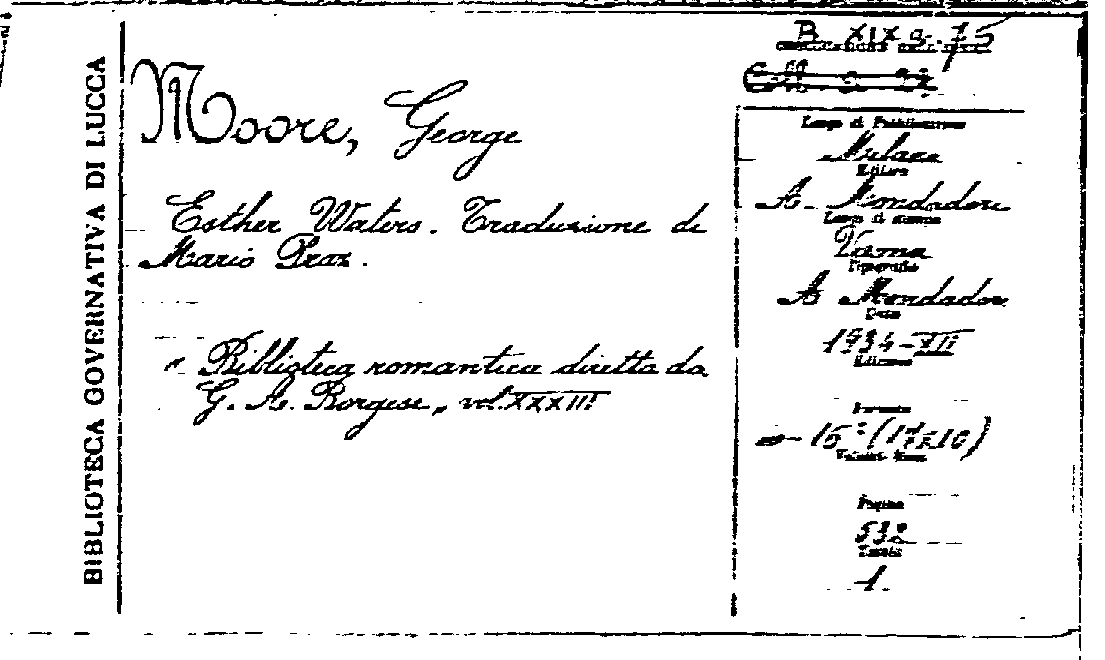 BIBLIOTECA GOVERNATIVA DI LUCCA
Moore, George
Esther Waters. Traduzione di
Mario Praz.
" Biblioteca romantica diretta da
G. A. Borgese " vol. XXXIII
B. XIX a. 75
Luogo di Pubblicazione
Milano
Editore
A. Mondadori
Luogo di stampa
Verona
Tipografia
A Mondadori
Data
1934-XII
Edizione
Formato
in-16° (17x10)
Pagine
532
Tavole
1